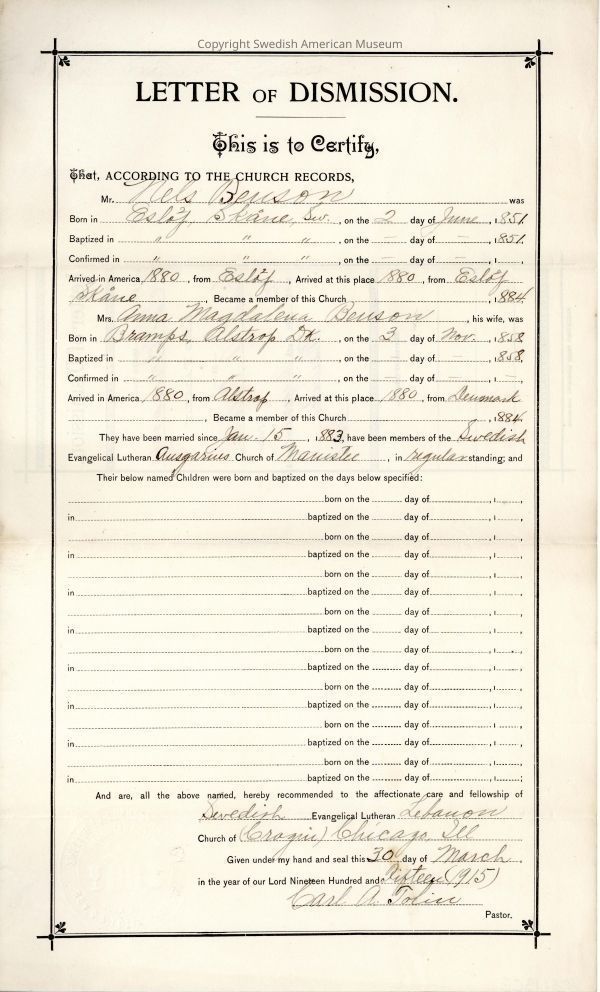 Copyright Swedish American Museum
LETTER OF DISMISSION.
This is to Certify,
That, ACCORDING TO THE CHURCH RECORDS,
Mr. Nels Benson was
Born in Eslöf Skåne, Sw., on the 2 day of June, 1851.
Baptized in " " ", on the — day of —, 1851.
Confirmed in " " ", on the — day of —, 1
Arrived in America 1880, from Eslöf, Arrived at this place 1880, from Eslöf
Skåne, Became a member of this Church, 1884.
Mrs. Anna Magdalena Benson, his wife, was
Born in Bramps, Alstrop DK., on the 3 day of Nov., 1858
Baptized in " " ", on the — day of —, 1858.
Confirmed in " " ", on the — day of —, 1 —,
Arrived in America 1880, from Alstrop, Arrived at this place 1880, from Denmark
, Became a member of this Church, 1884.
They have been married since Jan. 15, 1883, have been members of the Swedish
Evangelical Lutheran Ansgarius Church of Manistee, in regular standing; and
Their below named Children were born and baptized on the days below specified:
born on the day of , 1 ,
in baptized on the day of , 1 ,
born on the day of , 1 ,
in baptized on the day of , 1 ,
born on the day of , 1 ,
in baptized on the day of , 1 ,
born on the day of , 1 ,
in baptized on the day of , 1 ,
born on the day of , 1 ,
in baptized on the day of , 1 ,
born on the day of , 1 ,
in baptized on the day of , 1 ,
born on the day of , 1 ,
in baptized on the day of , 1 ,
born on the day of , 1 ,
in baptized on the day of , 1 ;
And are, all the above named, hereby recommended to the affectionate care and fellowship of
Swedish Evangelical Lutheran Lebanon
Church of (Cragin) Chicago, Ill
Given under my hand and seal this 30 day of March
in the year of our Lord Nineteen Hundred and Fifteen (1915)
Carl A. Tolin
Pastor.